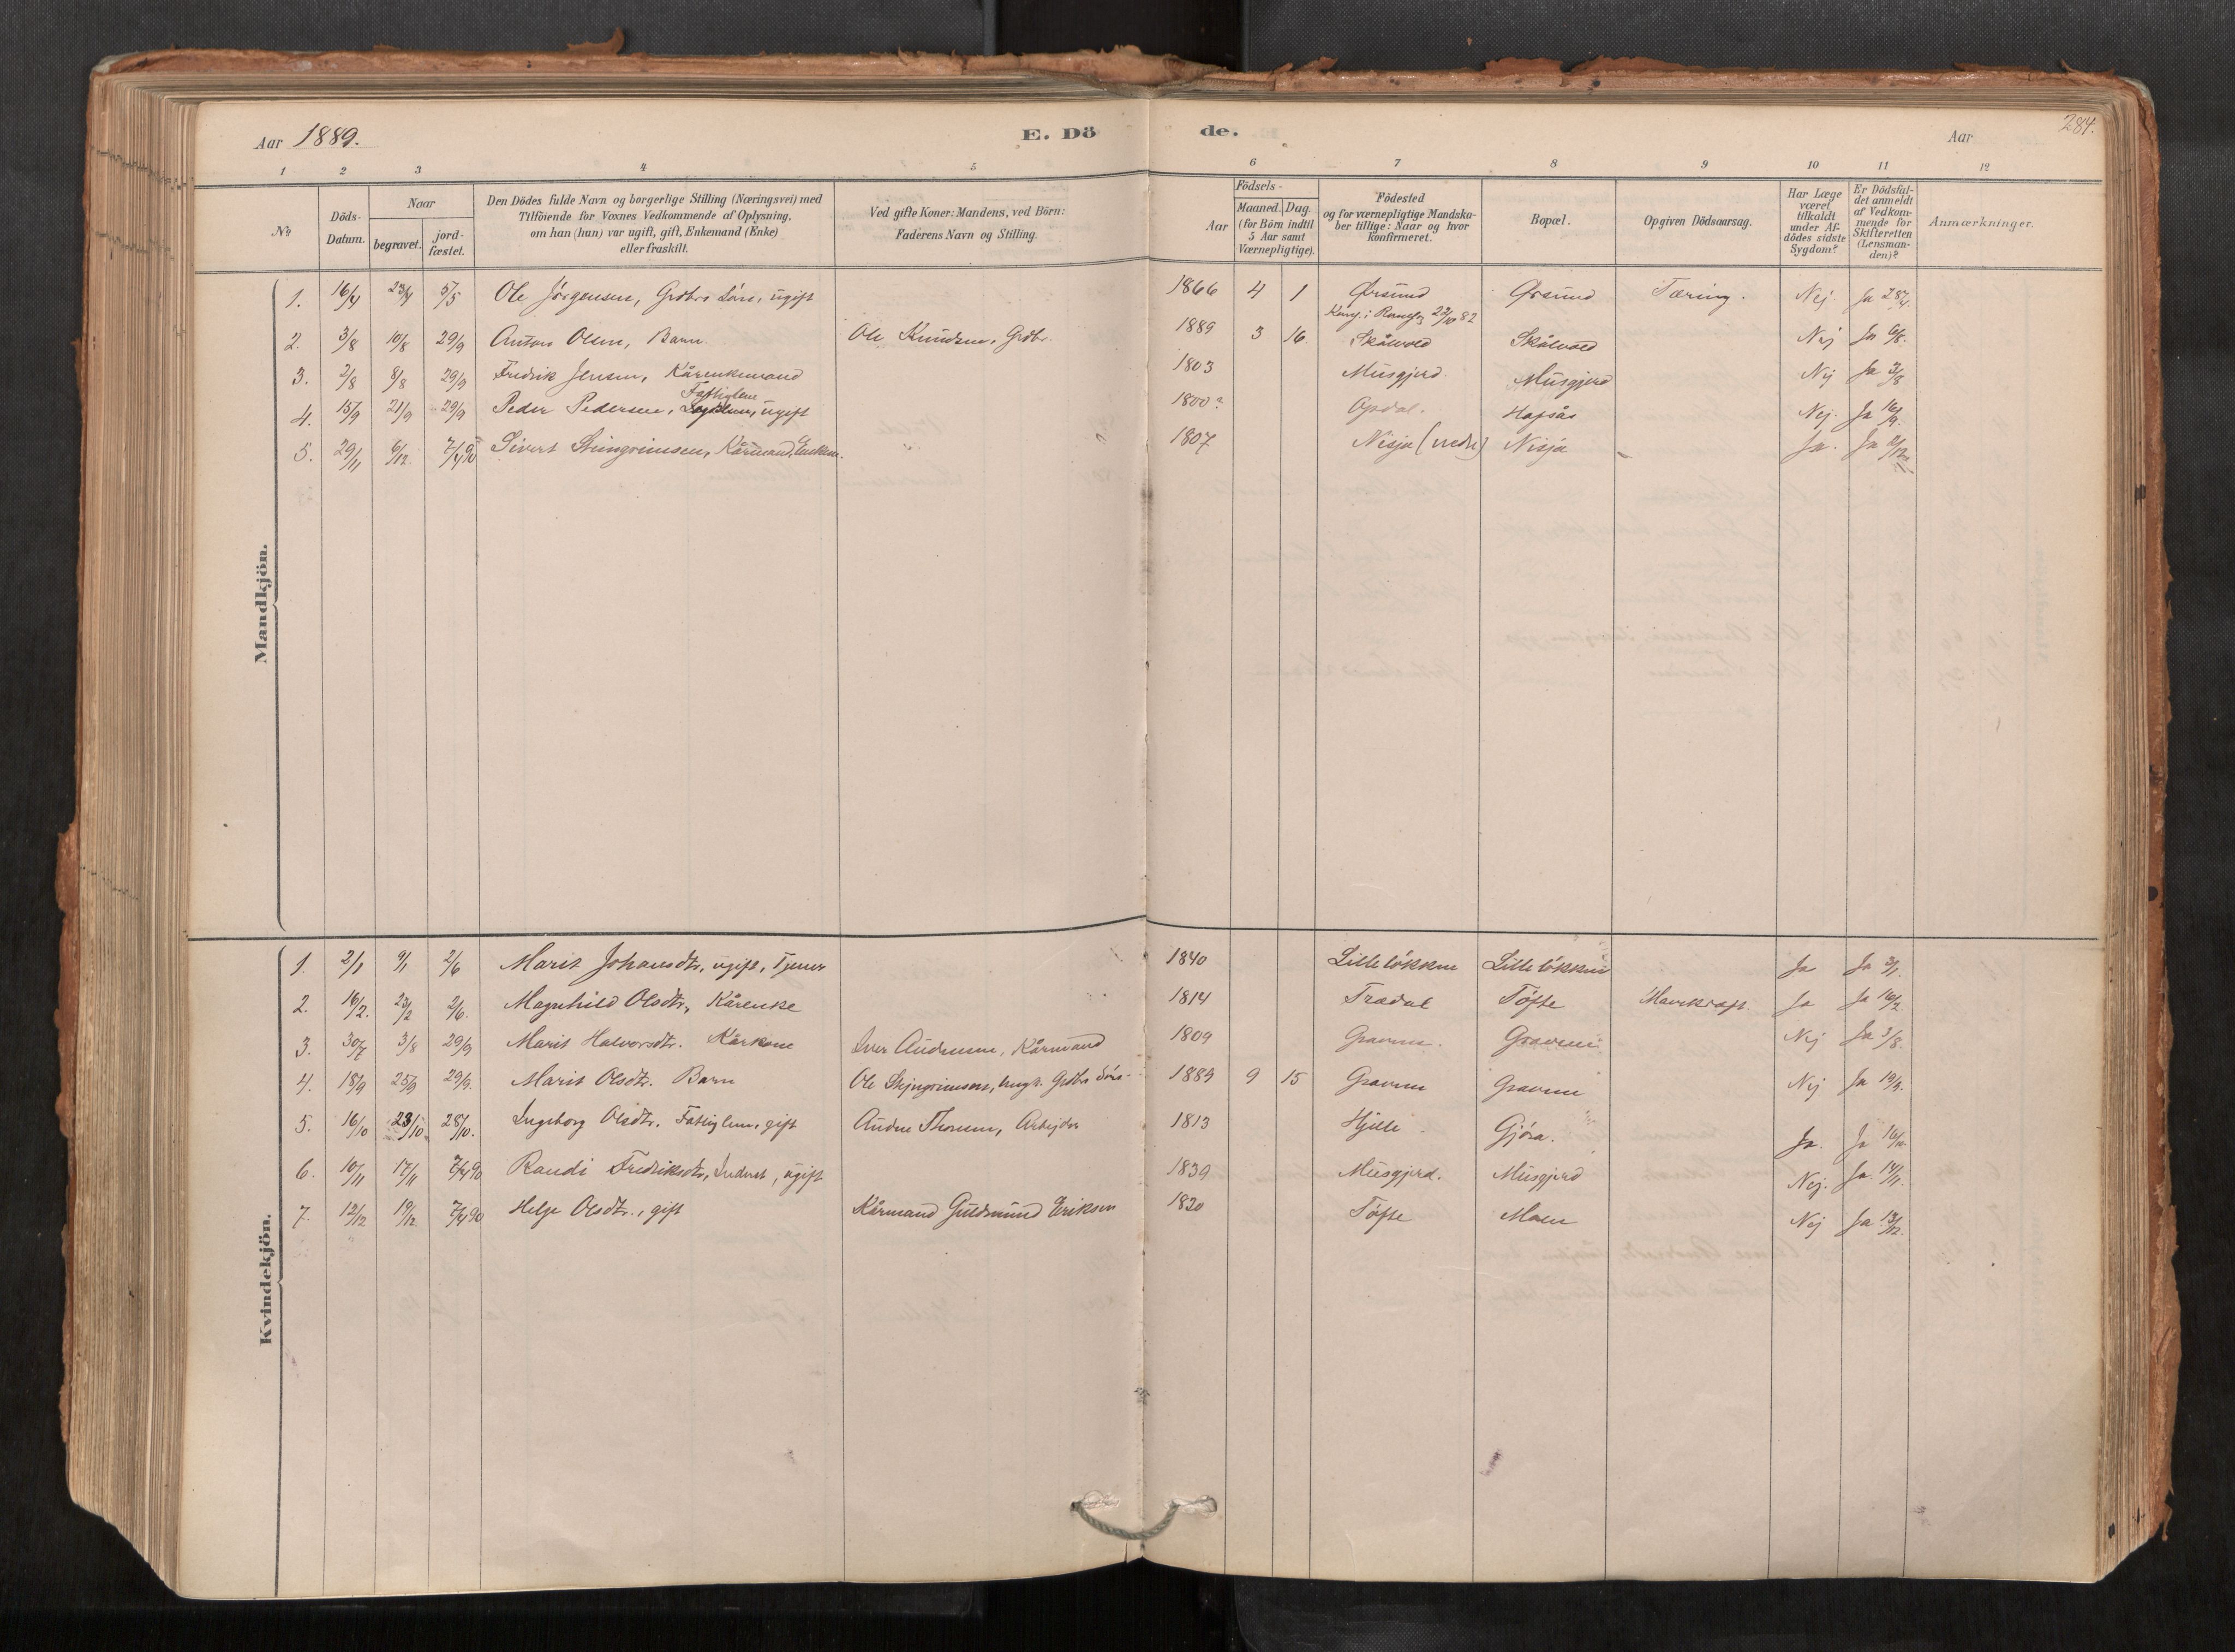 Aar 1889. E. Dö de. Aar 284.
1 2 3 4 5 6 7 8 9 10 11 12
№ Döds-Datum. Naar begravet. jord-fæstet. Den Dödes fulde Navn og borgerlige Stilling (Næringsvei) med Tilföiende for Voxnes Vedkommende af Oplysning, om han (hun) var ugift, gift, Enkemand (Enke) eller fraskilt. Ved gifte Koner: Mandens, ved Börn: Faderens Navn og Stilling. Födsels- Aar Maaned. Dag. (for Börn indtil 5 Aar samt Værnepligtige). Födested og for værnepligtige Mandskaber tillige: Naar og hvor Konfirmeret. Bopæl. Opgiven Dödsaarsag. Har Læge været tilkaldt under Afdödes sidste Sygdom? Er Dödsfaldet anmeldt af Vedkommende for Skifteretten (Lensmanden)? Anmærkninger.
Mandkjön.
1. 16/4 23/4 5/5 Ole Jörgensen, Grdbrs Sön, ugift 1866 4 1 Örsund Örsund Tæring. Nej. Ja 28/4.
2. 3/8 10/8 29/9 Anton Olsen, Barn. Ole Knudsen, Grdbr. 1889 3 16 Skålvold Skålvold Nej Ja 6/8.
3. 2/8 8/8 29/9 Fredrik Jensen, Kårenkemand 1803 Musgjerd Musgjerd Nej Ja 3/8
4. 15/9 21/9 29/9 Peder Pedersen, Fattiglem, ugift 1800? Opdal. Hafsås Nej. Ja 16/9.
5. 29/11 6/12. 7/4 90 Sivert Steingrimsen, Kårmand, Enkem. 1807 Nisja (nedre) Nisja Ja. Ja 2/12.
Kvindekjön.
1. 2/1 9/1 2/6 Marit Johansdtr, ugift, Tjener 1840 Lillelökken Lillelökken Ja Ja 3/1.
2. 16/2. 23/2 2/6. Magnhild Olsdtr, Kårenke 1814 Trædal Töfte Mavekræft. Ja Ja 16/2
3. 30/7 3/8 29/9 Marit Halvorsdtr. Kårkone Iver Andersen, Kårmand 1809 Gravem. Gravem Nej Ja 3/8.
4. 18/9 25/9 29/9. Marit Olsdtr. Barn Ole Stejngrimsen, Ungk. Grdbr Sön 1889 9 15 Gravem Gravem Nej Ja 19/9.
5. 16/10 23/10 28/10. Ingeborg Olsdtr. Fattiglem, gift Anders Thoresen, Arbejder 1813 Hjelle Gjöra. Ja. Ja 16/10.
6. 10/11 17/11 7/4 90 Randi Fredriksdtr, Inderst, ugift 1839 Musgjerd. Musgjerd Nej. Ja. 14/11.
7. 12/12 19/12 7/4 90 Helge Olsdtr., gift Kårmand Guldmund Eriksen 1820 Töfte Moen Nej Ja 13/12.